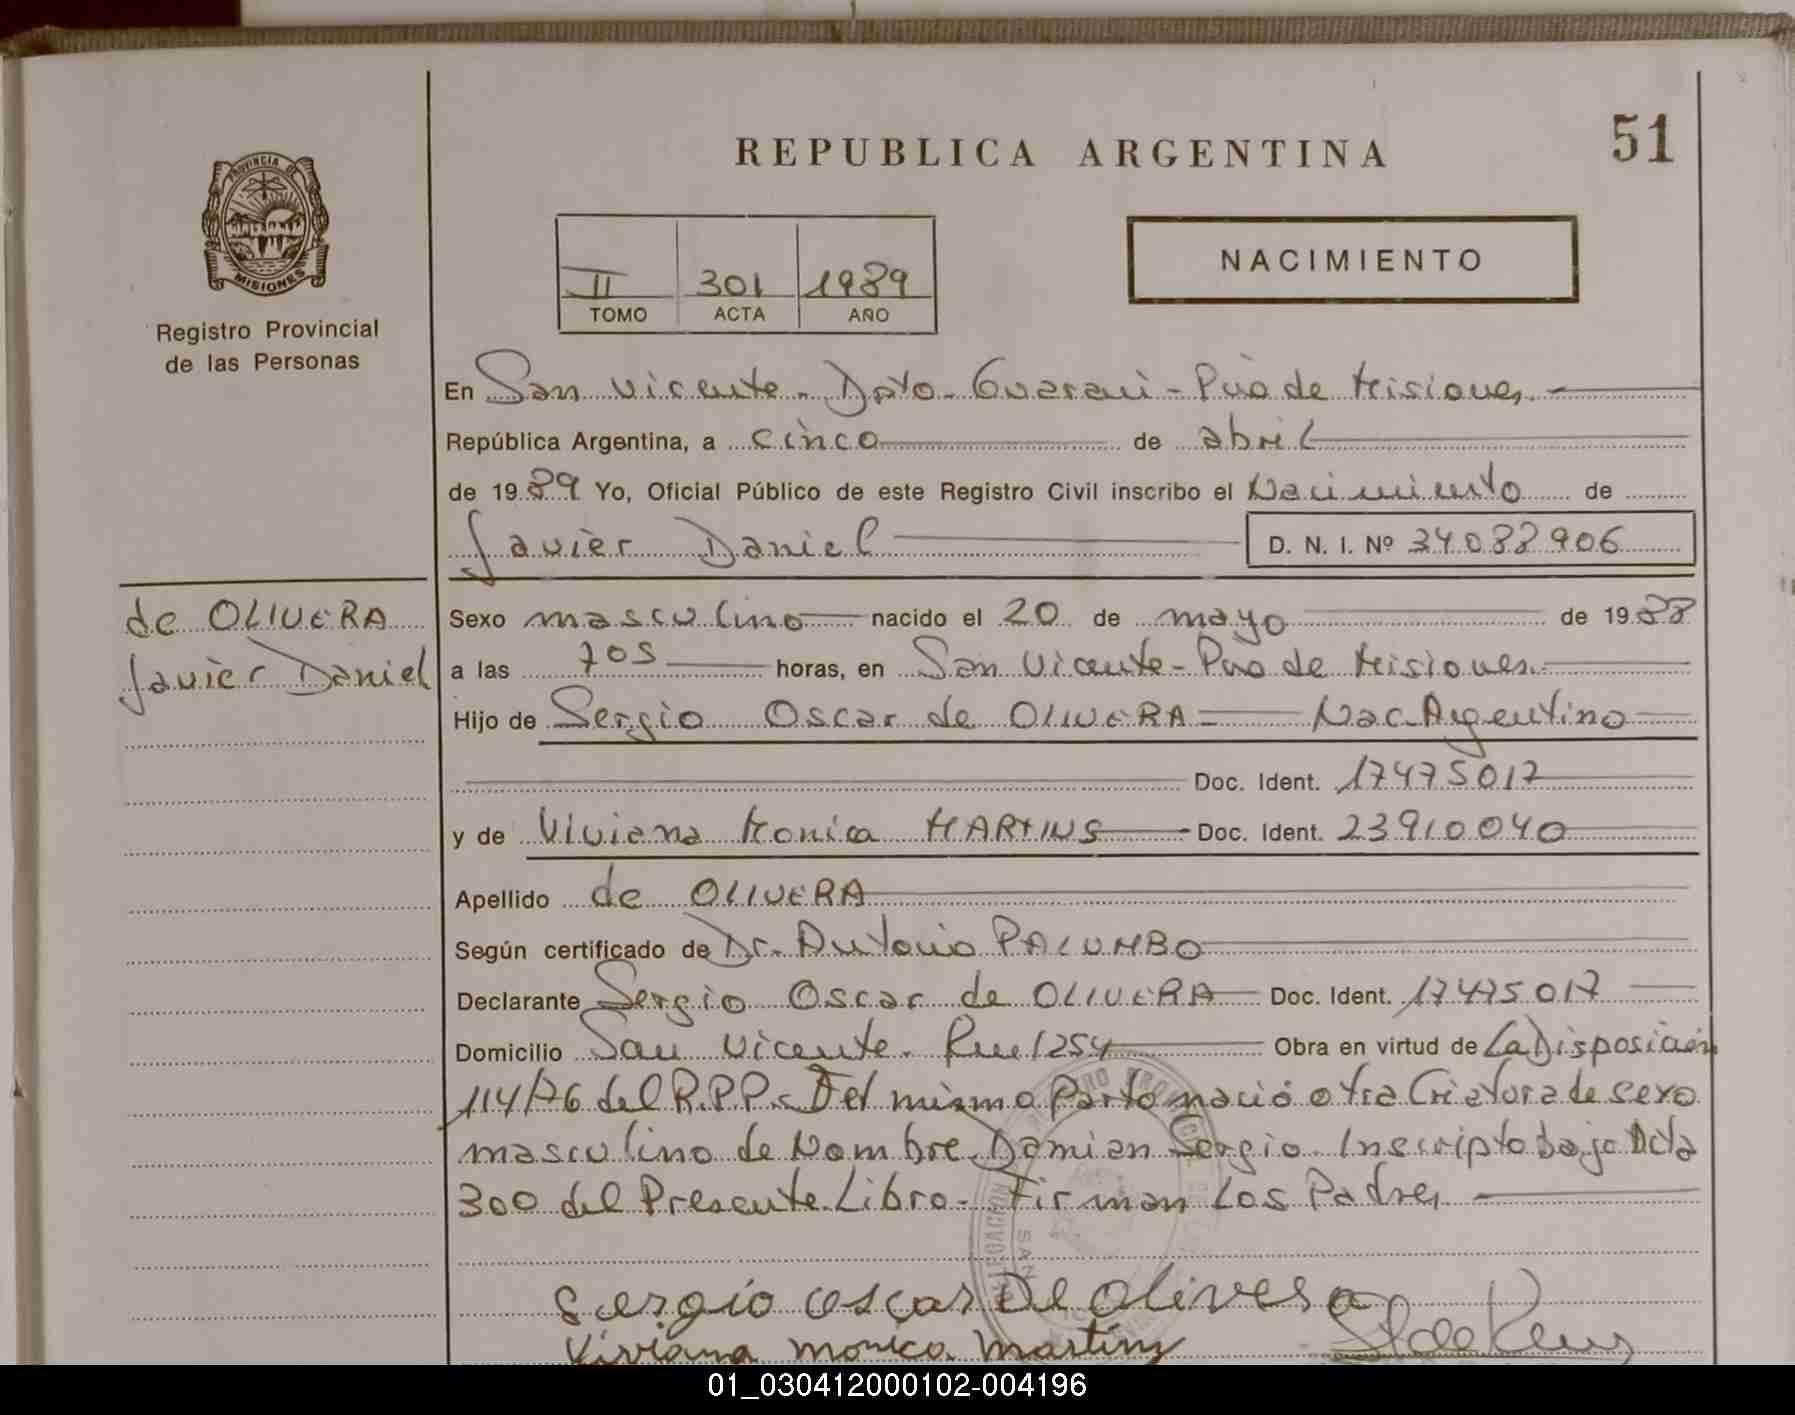 REPUBLICA ARGENTINA
51
PROVINCIA DE
MISIONES
Registro Provincial
de las Personas
II 301 1989
TOMO ACTA AÑO
NACIMIENTO
En San Vicente - Dpto - Guarani - Pcia de Misiones
República Argentina, a cinco de abril
de 1989 Yo, Oficial Público de este Registro Civil inscribo el Nacimiento de
Javier Daniel D. N. I. Nº 34088906
de OLIVERA
Javier Daniel
Sexo masculino nacido el 20 de mayo de 1988
a las 705 horas, en San Vicente - Pcia de Misiones
Hijo de Sergio Oscar de OLIVERA Nac. Argentino
Doc. Ident. 17475017
y de Viviana Monica MARTINS Doc. Ident. 23910040
Apellido de OLIVERA
Según certificado de Dr. Antonio PALUMBO
Declarante Sergio Oscar de OLIVERA Doc. Ident. 17475017
Domicilio San Vicente. 1254 Obra en virtud de La Disposición
114/76 del R.P.P. Del mismo Parto nació otra Criatura de sexo
masculino de Nombre Damian Sergio. Inscripto bajo Acta
300 del Presente Libro - Firman Los Padres
Sergio oscar De olivera
Viviana monica martins
01_030412000102-004196